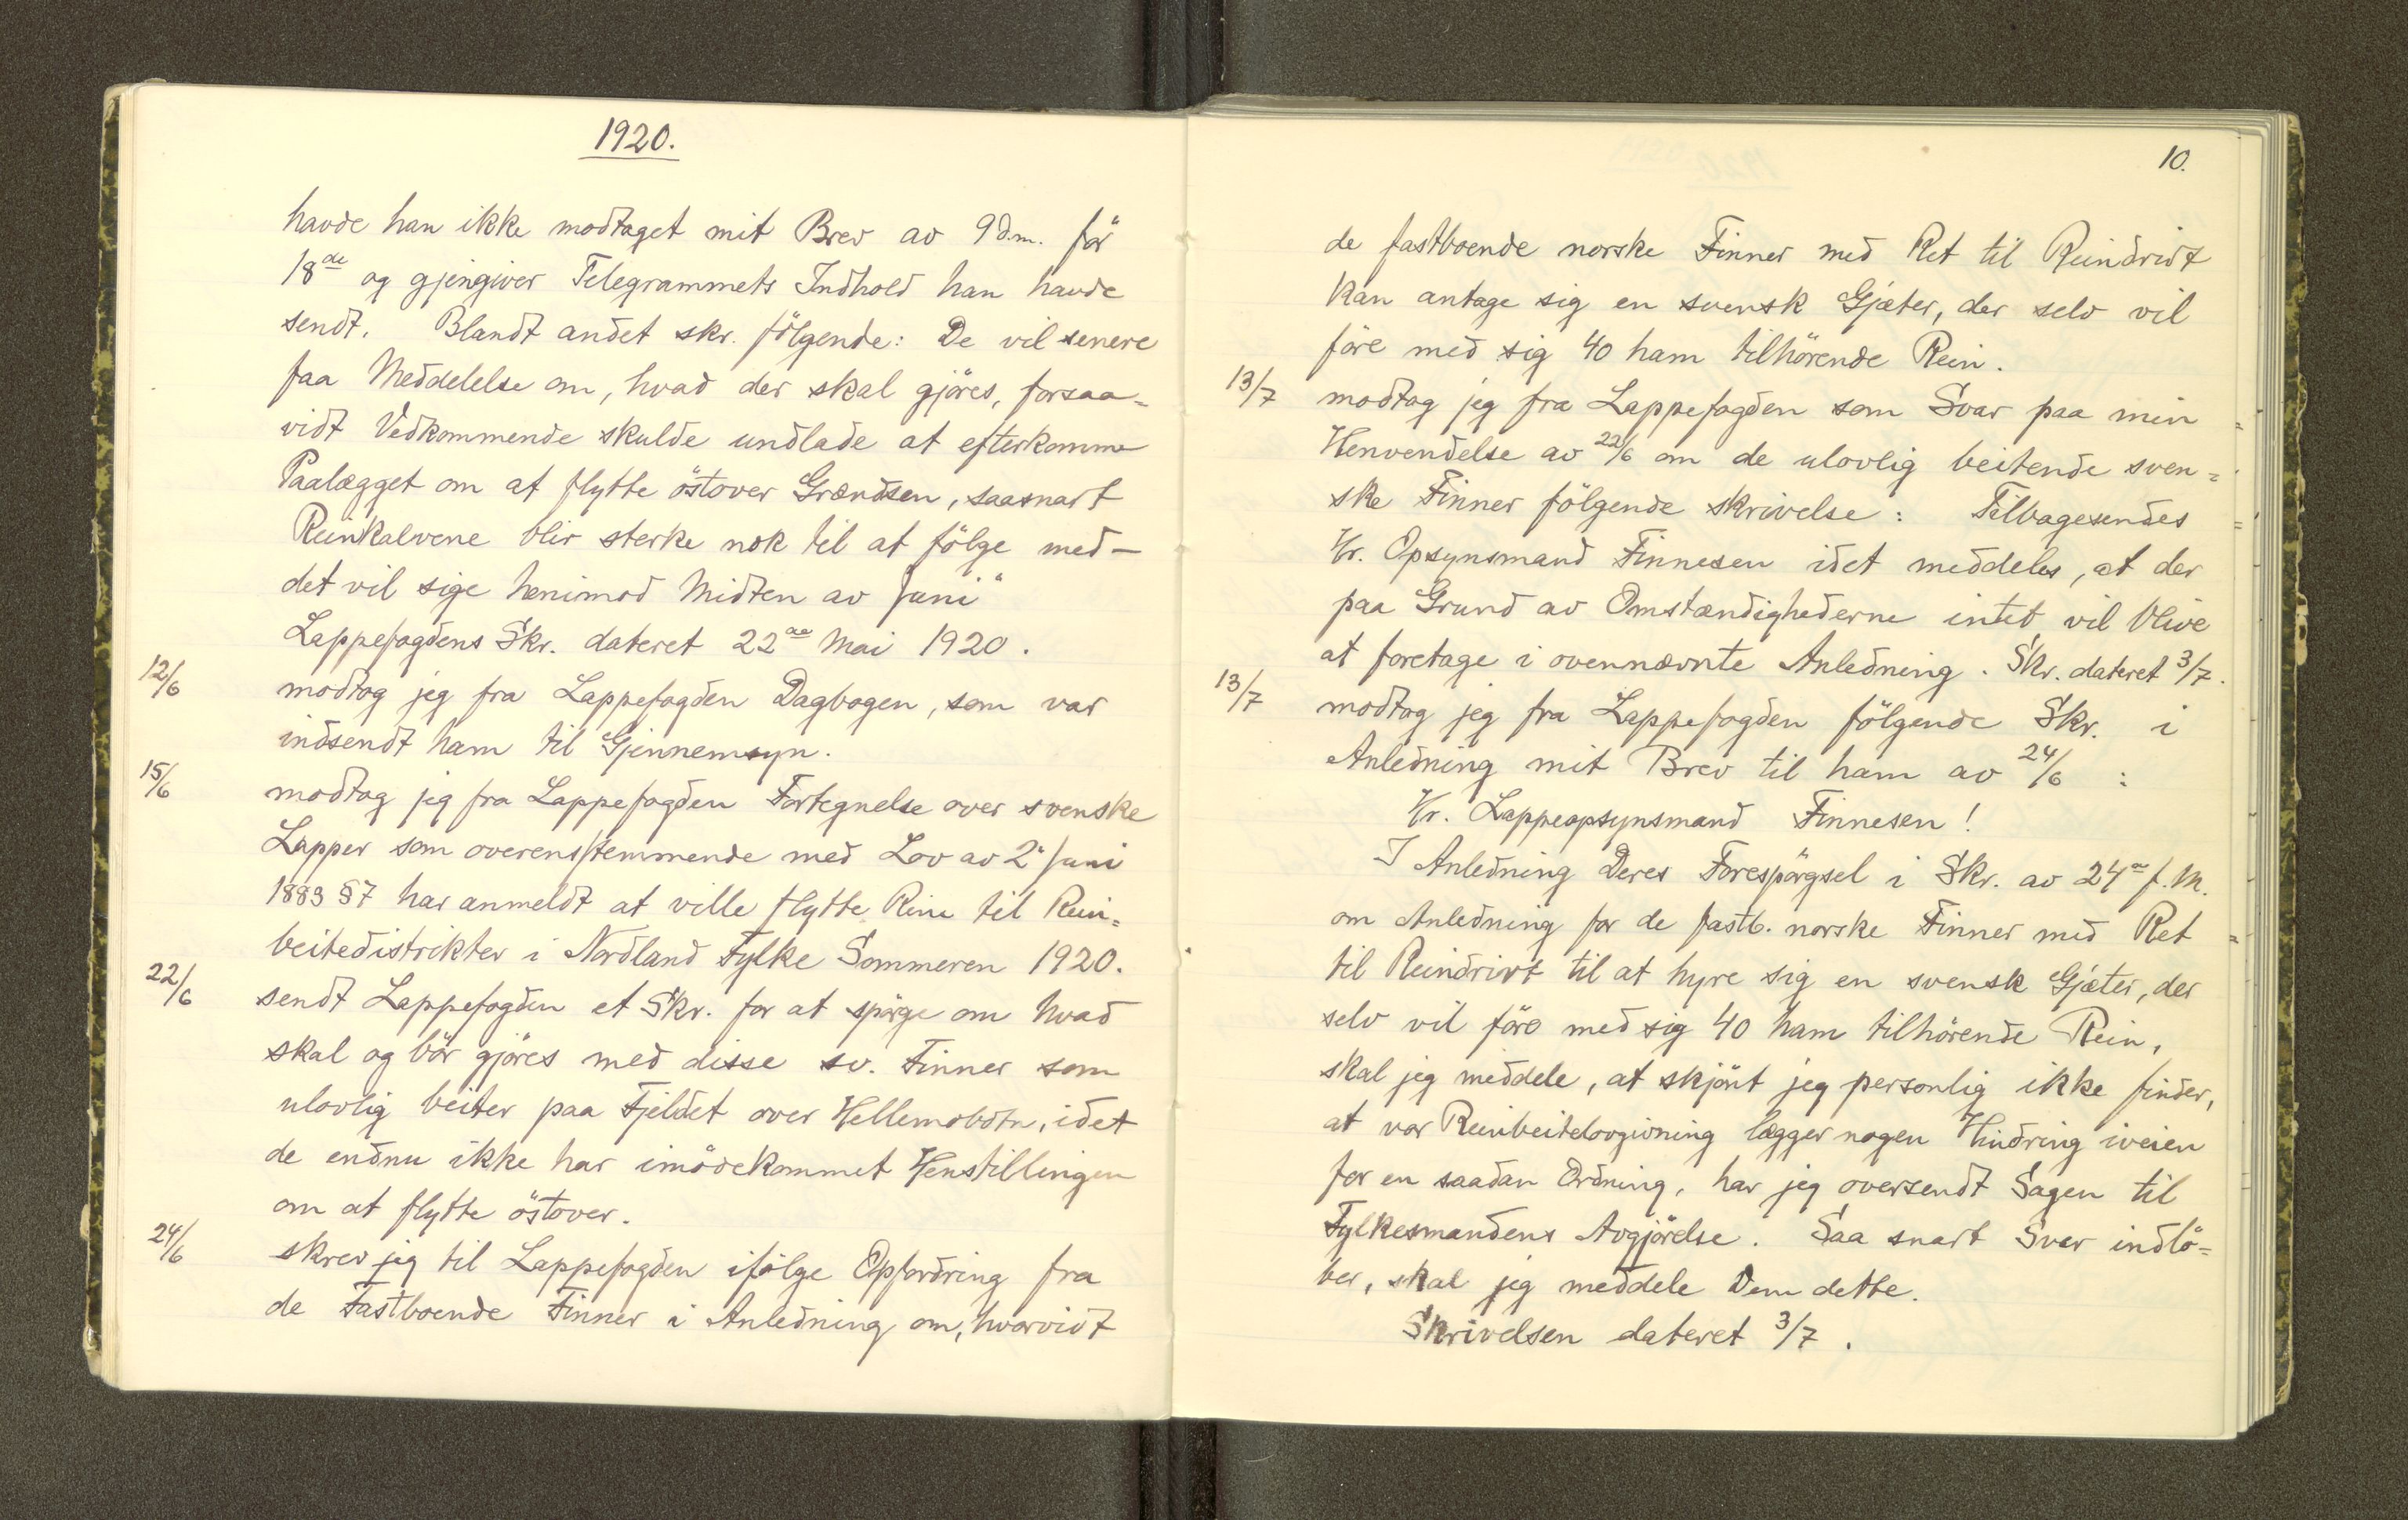 1920.
havde han ikke modtaget mit Brev av 9 d.m. för
18de og gjengiver Telegrammets Indhold han havde
sendt. Blandt andet skr. fölgende: De vil senere
faa Meddelelse om, hvad der skal gjöres, forsaa=
vidt Vedkommende skulde undlade at efterkomme
Paalægget om at flytte östover Grændsen, saasnart
Reinkalvene blir sterke nok til at fölge med -
det vil sige henimod Midten av Juni"
Lappefogdens Skr. dateret 22de Mai 1920.
12/6 modtog jeg fra Lappefogden Dagbogen, som var
indsendt ham til Gjennemsyn.
15/6 modtog jeg fra Lappefogden Fortegnelse over svenske
Lapper som overensstemmende med Lov av 2. Juni
1883 § 7 har anmeldt at ville flytte Rein til Rein=
beitedistrikter i Nordland Fylke Sommeren 1920.
22/6 sendt Lappefogden et Skr. for at spörge om hvad
skal og bör gjöres med disse sv. Finner som
ulovlig beiter paa Fjeldet over Hellemobotn, idet
de endnu ikke har imödekommet Henstillingen
om at flytte östover.
24/6 skrev jeg til Lappefogden ifölge Opfordring fra
de Fastboende Finner i Anledning om, hvorvidt
10.
de fastboende norske Finner med Ret til Reindrivt
kan antage sig en svensk Gjæter, der selv vil
före med sig 40 ham tilhörende Rein.
13/7 modtog jeg fra Lappefogden som Svar paa min
Henvendelse av 22/6 om de ulovlig beitende sven=
ske Finner fölgende skrivelse: Tilbagesendes
Hr. Opsynsmand Finnesen idet meddeles, at der
paa Grund av Omstændighederne intet vil blive
at foretage i ovennævnte Anledning. Skr. dateret 3/7.
13/7 modtog jeg fra Lappefogden fölgende Skr. i
Anledning mit Brev til ham av 24/6 :
Hr. Lappeopsynsmand Finnesen!
I Anledning Deres Forespörgsel i Skr. av 24de f.M.
om Anledning for de fastb. norske Finner med Ret
til Reindrivt til at hyre sig en svensk Gjæter, der
selv vil före med sig 40 ham tilhörende Rein,
skal jeg meddele, at skjönt jeg personlig ikke finder,
at vor Reinbeitelovgivning lægger nogen Hindring iveien
for en saadan Ordning, har jeg oversendt Sagen til
Fylkesmandens Avgjörelse. Saa snart Svar indlö=
ber, skal jeg meddele Dem dette.
Skrivelsen dateret 3/7.